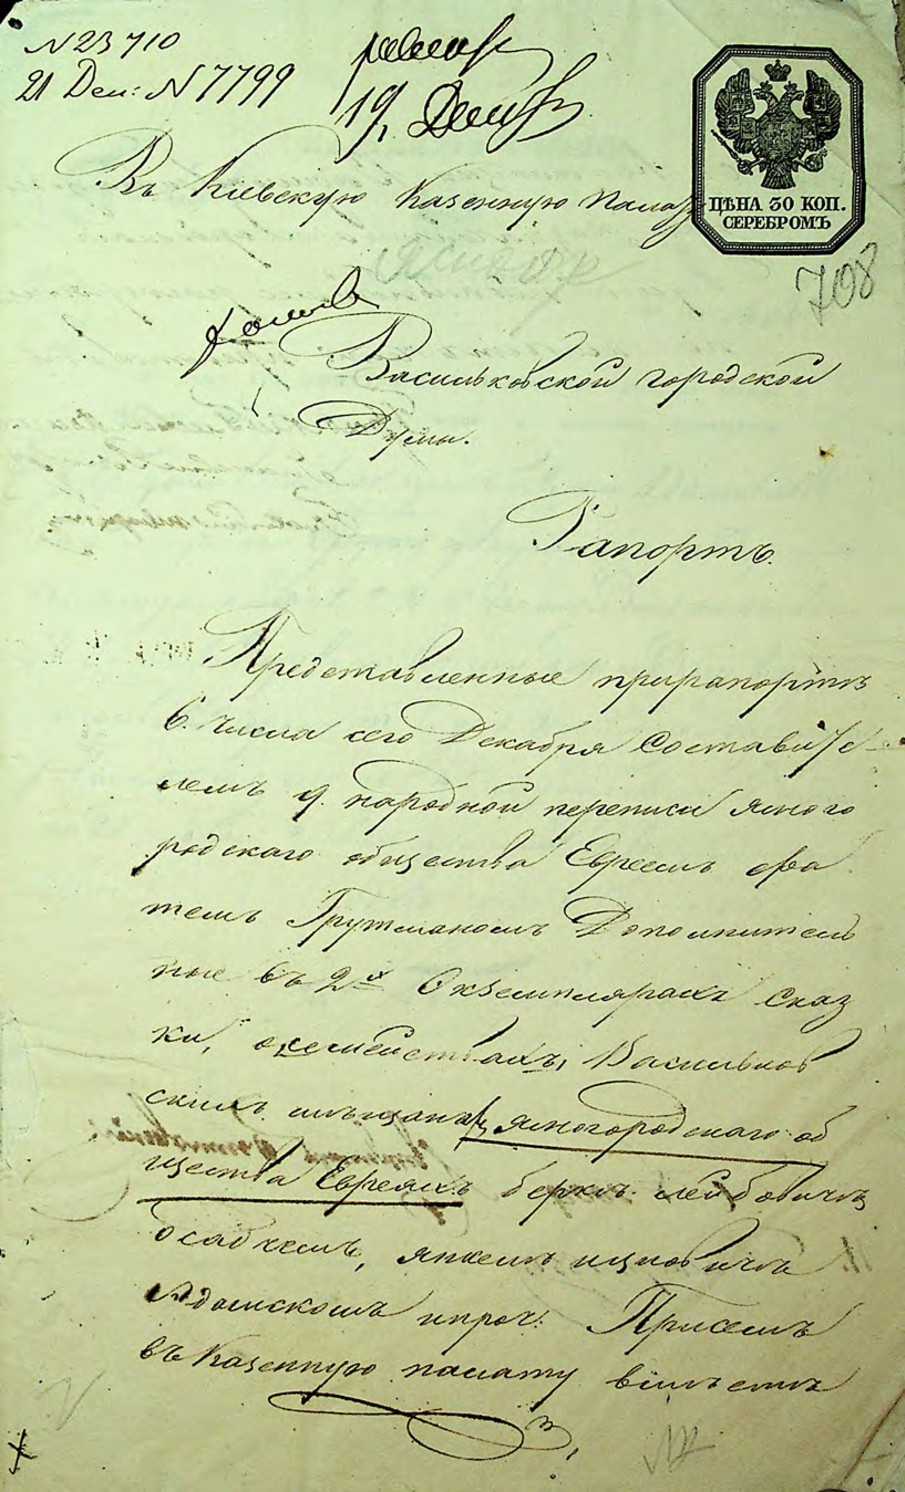 N 23710
21 Дек: N 7799
19, Декаб
ЦѢНА 30 КОП.
СЕРЕБРОМЪ
Въ Кіевскую Казенную Палату
708
Васильковской городской
Думы.
Рапортъ.
Представленные прирапортѣ
6. числа сего Декабря Составите
лемъ 9. народной переписи ясного
родскаго общества Евреемъ
Грутманомъ Дополнитель
ные въ 2х Екземплярахъ Сказ
ки, осемействахъ, Васильков
скимъ мѣщанахъ ясногородскаго об
щества Евреяхъ беркѣ лейбовичѣ
янкелѣ ицковичѣ
ипроч: Присемъ
въ Казенную палату вмѣстѣ